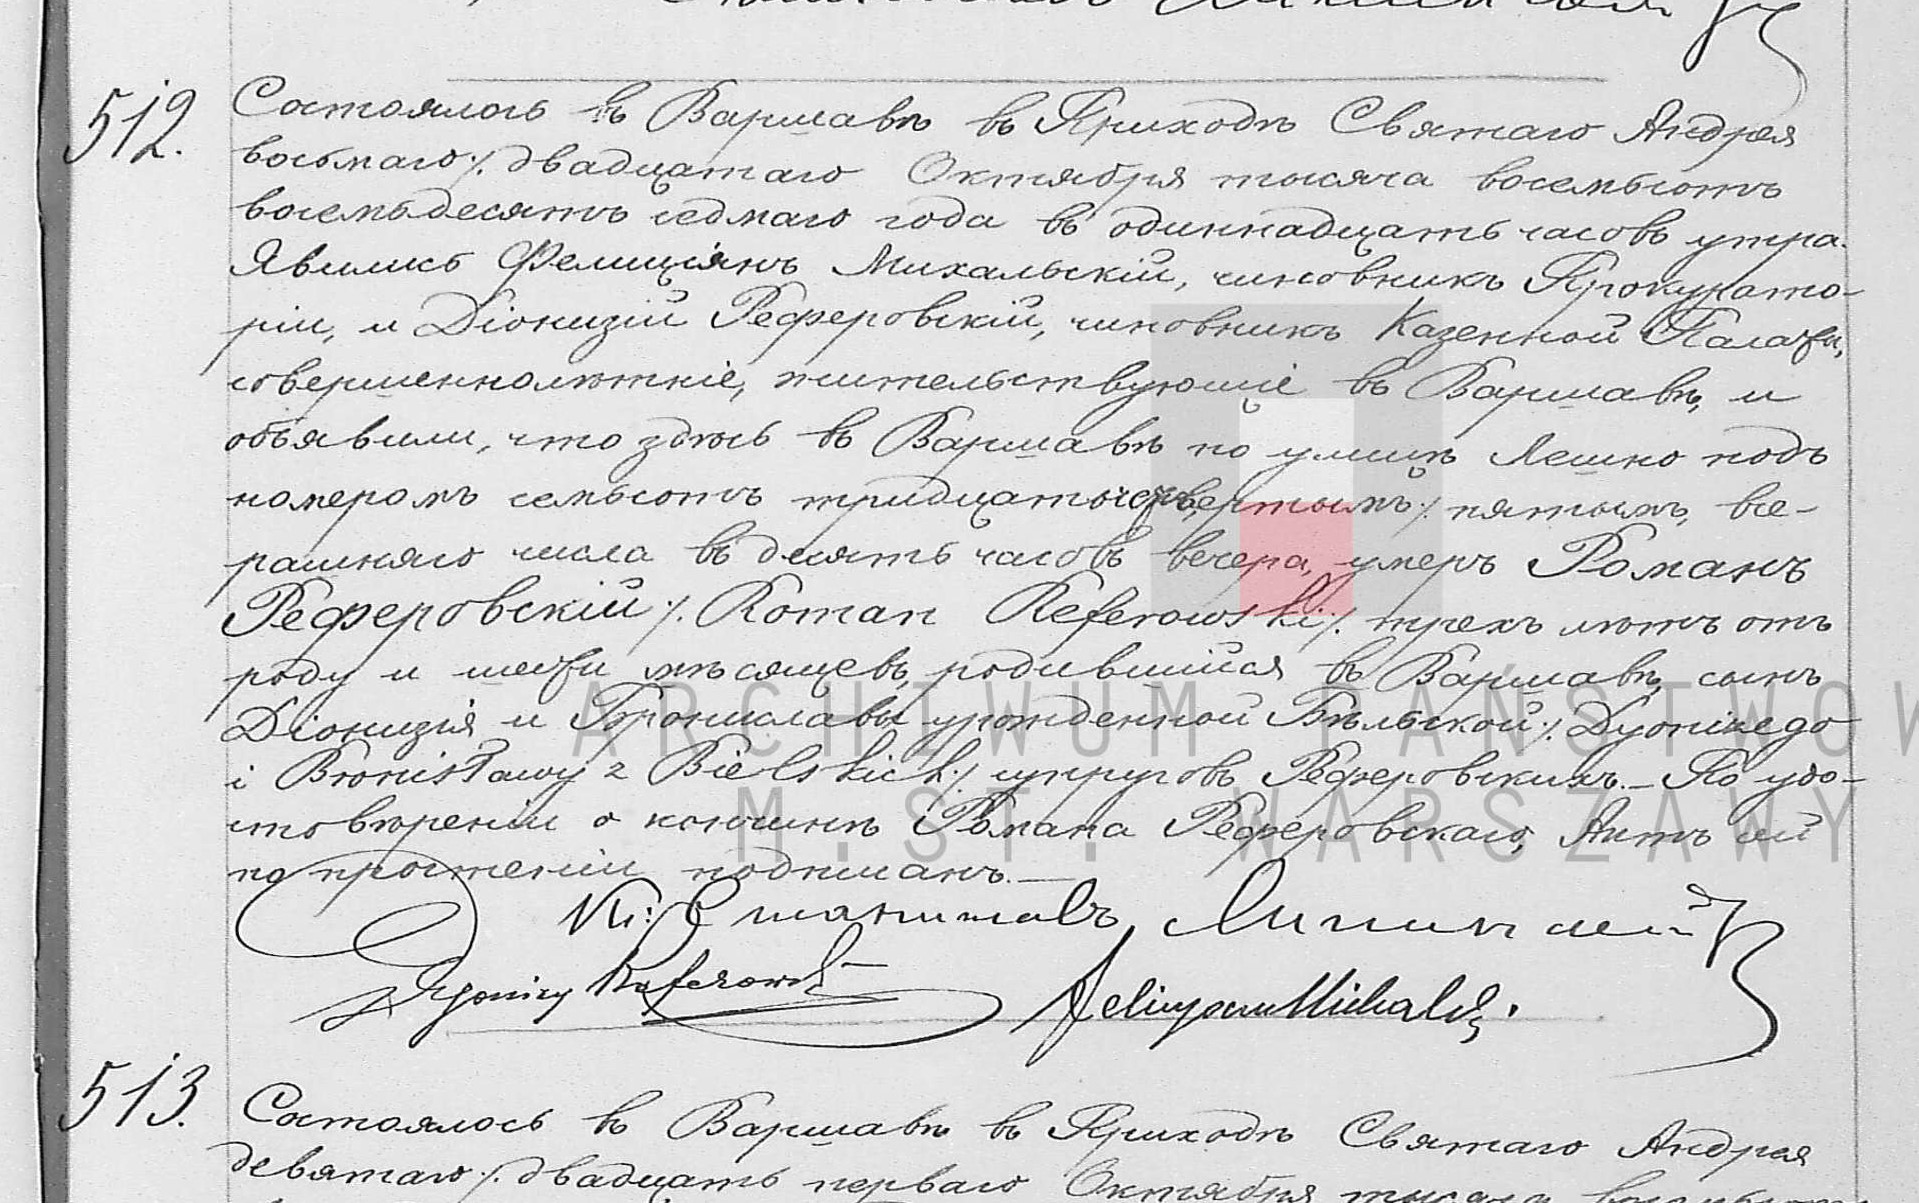 512.
Состоялось въ Варшавѣ въ Приходѣ Святаго Андрея
восьмаго /. двадцатаго Октября тысяча восемьсотъ
восемьдесятъ седмаго года въ одиннадцать часовъ утра.
Явились Фелиціянъ Михальскій, чиновникъ Прокурато-
ріи, и Діонизій Реферовскій, чиновникъ Казенной Палаты,
совершеннолѣтніе, жительствующіе въ Варшавѣ, и
объявили, что здѣсь въ Варшавѣ по улицѣ Лешно подъ
номеромъ семьсотъ тридцать четвертымъ /. пятымъ, вче-
рашняго числа въ десять часовъ вечера, умеръ Романъ
Реферовскій /. Roman Referowski /. трехъ лѣтъ отъ
роду и шести мѣсяцевъ, родившійся въ Варшавѣ, сынъ
Діонизія и Брониславы урожденной Бѣльской /. Dyonizego
i Bronisławy z Bielskich /. супруговъ Реферовскихъ. — По удо-
стовѣреніи о кончинѣ Романа Реферовскаго, Актъ сей
по прочтеніи подписанъ. —
Кс: Станиславъ
Dyonizy Referowski Felicyan Michalski.
513.
Состоялось въ Варшавѣ въ Приходѣ Святаго Андрея
девятаго /. двадцать перваго Октября тысяча
ARCHIWUM PAŃSTWOW
M.ST. WARSZAWY